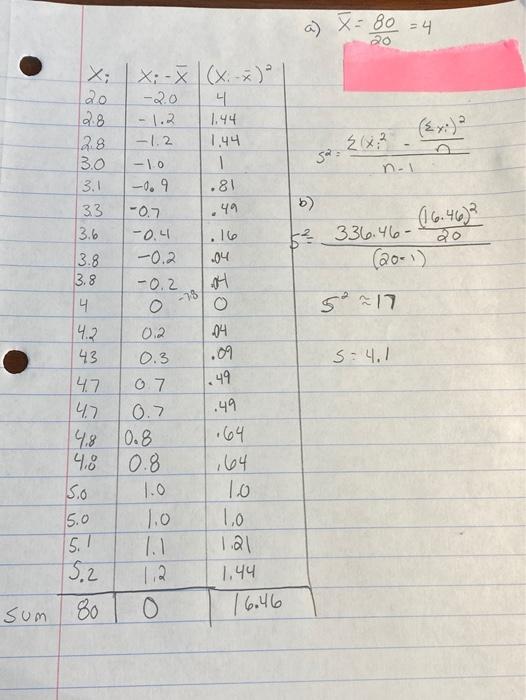 a) x̄ = 80/20 = 4
xᵢ | xᵢ - x̄ | (xᵢ - x̄)²
2.0 | -2.0 | 4
2.8 | -1.2 | 1.44
2.8 | -1.2 | 1.44
3.0 | -1.0 | 1
3.1 | -0.9 | .81
3.3 | -0.7 | .49
3.6 | -0.4 | .16
3.8 | -0.2 | .04
3.8 | -0.2 | .04
4 | 0 -7.8 | 0
4.2 | 0.2 | .04
43 | 0.3 | .09
4.7 | 0.7 | .49
4.7 | 0.7 | .49
4.8 | 0.8 | .64
4.8 | 0.8 | .64
5.0 | 1.0 | 1.0
5.0 | 1.0 | 1.0
5.1 | 1.1 | 1.21
5.2 | 1.2 | 1.44
Sum | 80 | 0 | 16.46
s² = (Σ(xᵢ² - (Σxᵢ)²/n)/(n-1)
b)
s² = (336.46 - (16.46)²/20)/(20-1)
s² ≈ 17
s = 4.1